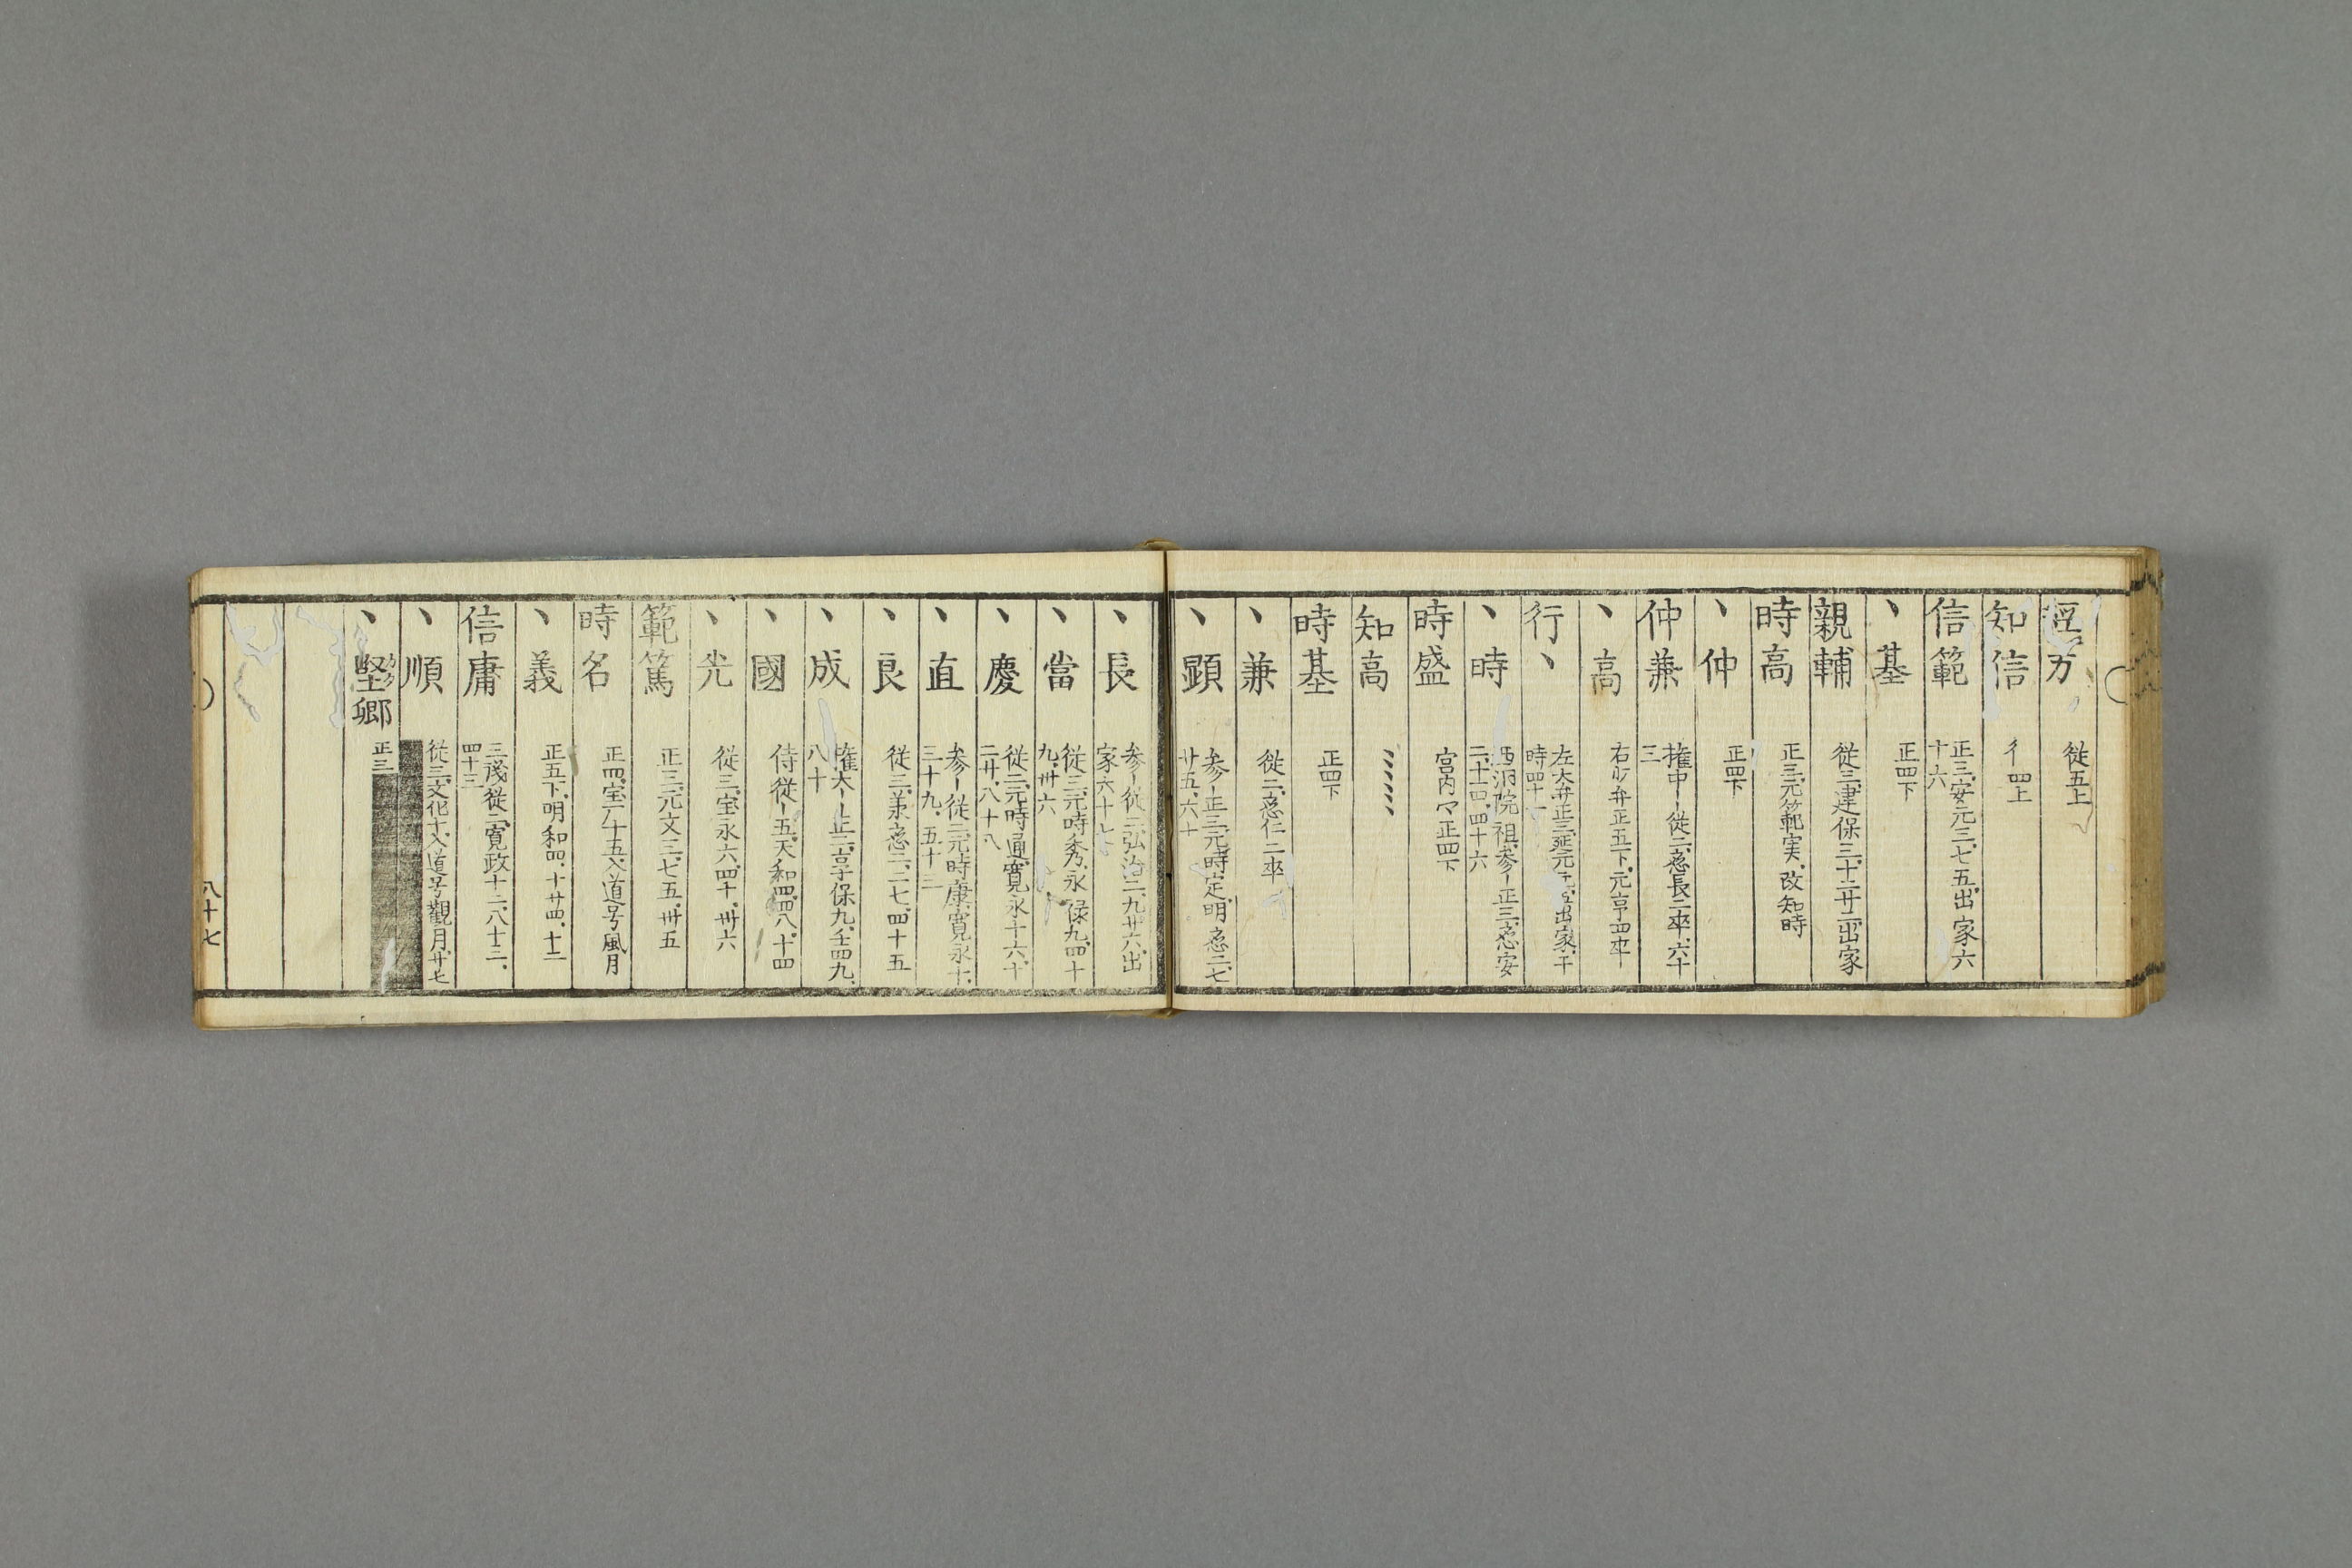 方 従五上
知信 彳四上
信範 正三、安元三、七五、出家六
十六
丶基 正四下
親輔 従三、建保三、十二廿二、出家
時高 正三、元範実、改知時
丶仲 正四下
仲兼 権中｜従二、應長二卒、六十
三
丶高 右少弁正五下、元亨四卒
行丶 左大弁正三、延元出家、干
時四十
丶時 西洞院祖、参｜正三、應安
二、十一四、四十六
時盛 宮内マ正四下
知高
時基 正四下
丶兼 従二、應仁二卒
丶顕 参｜正三、元時定、明應二、七
廿五、六十
丶長 参｜従二、弘治二、九廿六、出
家六十七
丶當 従三、元時秀、永禄九、四十
九、卅六
丶慶 従二、元時通、寛永十六、十
二廿、八十八
丶直 参｜従二、元時康、寛永十、
三十九、五十三
丶良 従三、兼應二、二七、四十五
丶成 権大｜正二、享保九、壬四九、
八十
丶國 侍従｜五、天和四、四八、十四
丶光 従三、宝永六、四十、卅六
範篤 正三、元文三、七五、卅五
時名 正四、宝厂十五、入道号風月
丶義 正五下、明和四、十廿四、十二
信庸 三茂従二、寛政十二、八十二、
四十三
丶順 従三、文化十、入道号観月、廿七
丶堅卿 正三
八十七